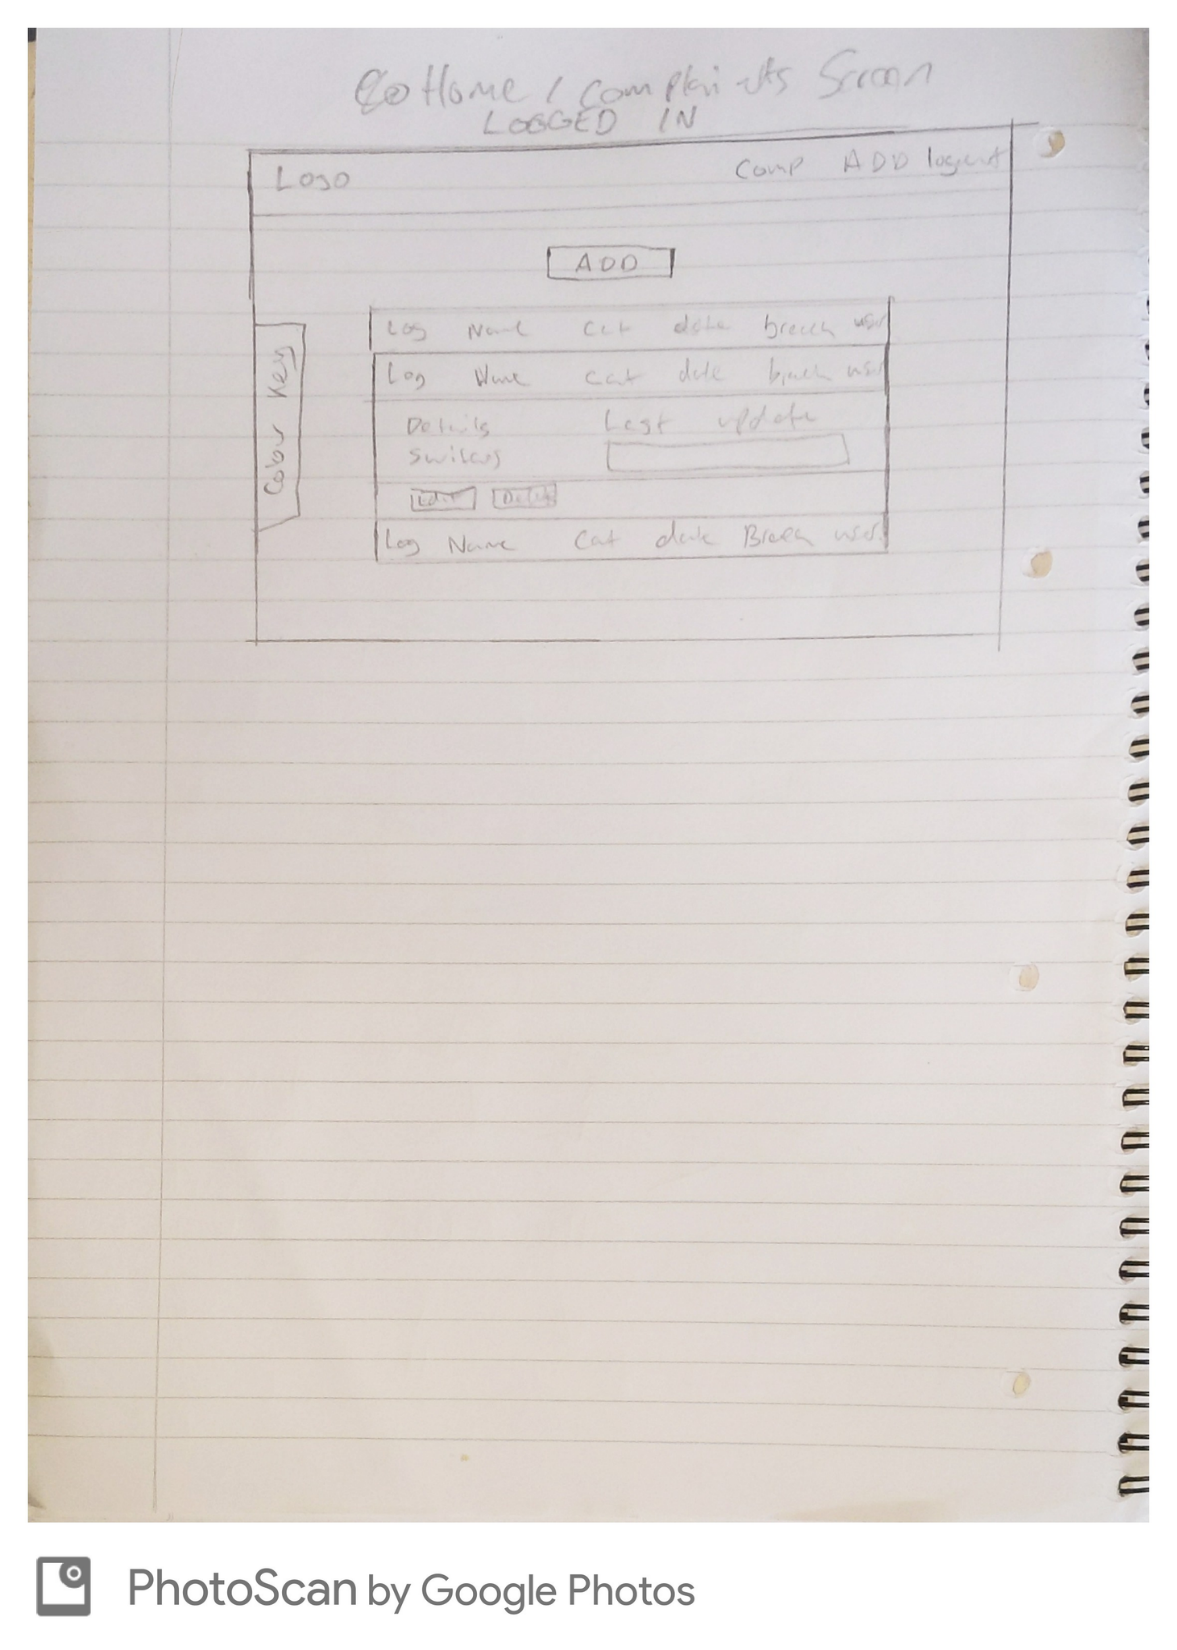 Home / Complaints Screen
LOGGED IN
Logo Comp ADD logout
ADD
Log Name Cat date breach user
Log Name Cat date breach user
Colour Key
Details Last update
Switches
Edit Delete
Log Name Cat date Breach user
PhotoScan by Google Photos